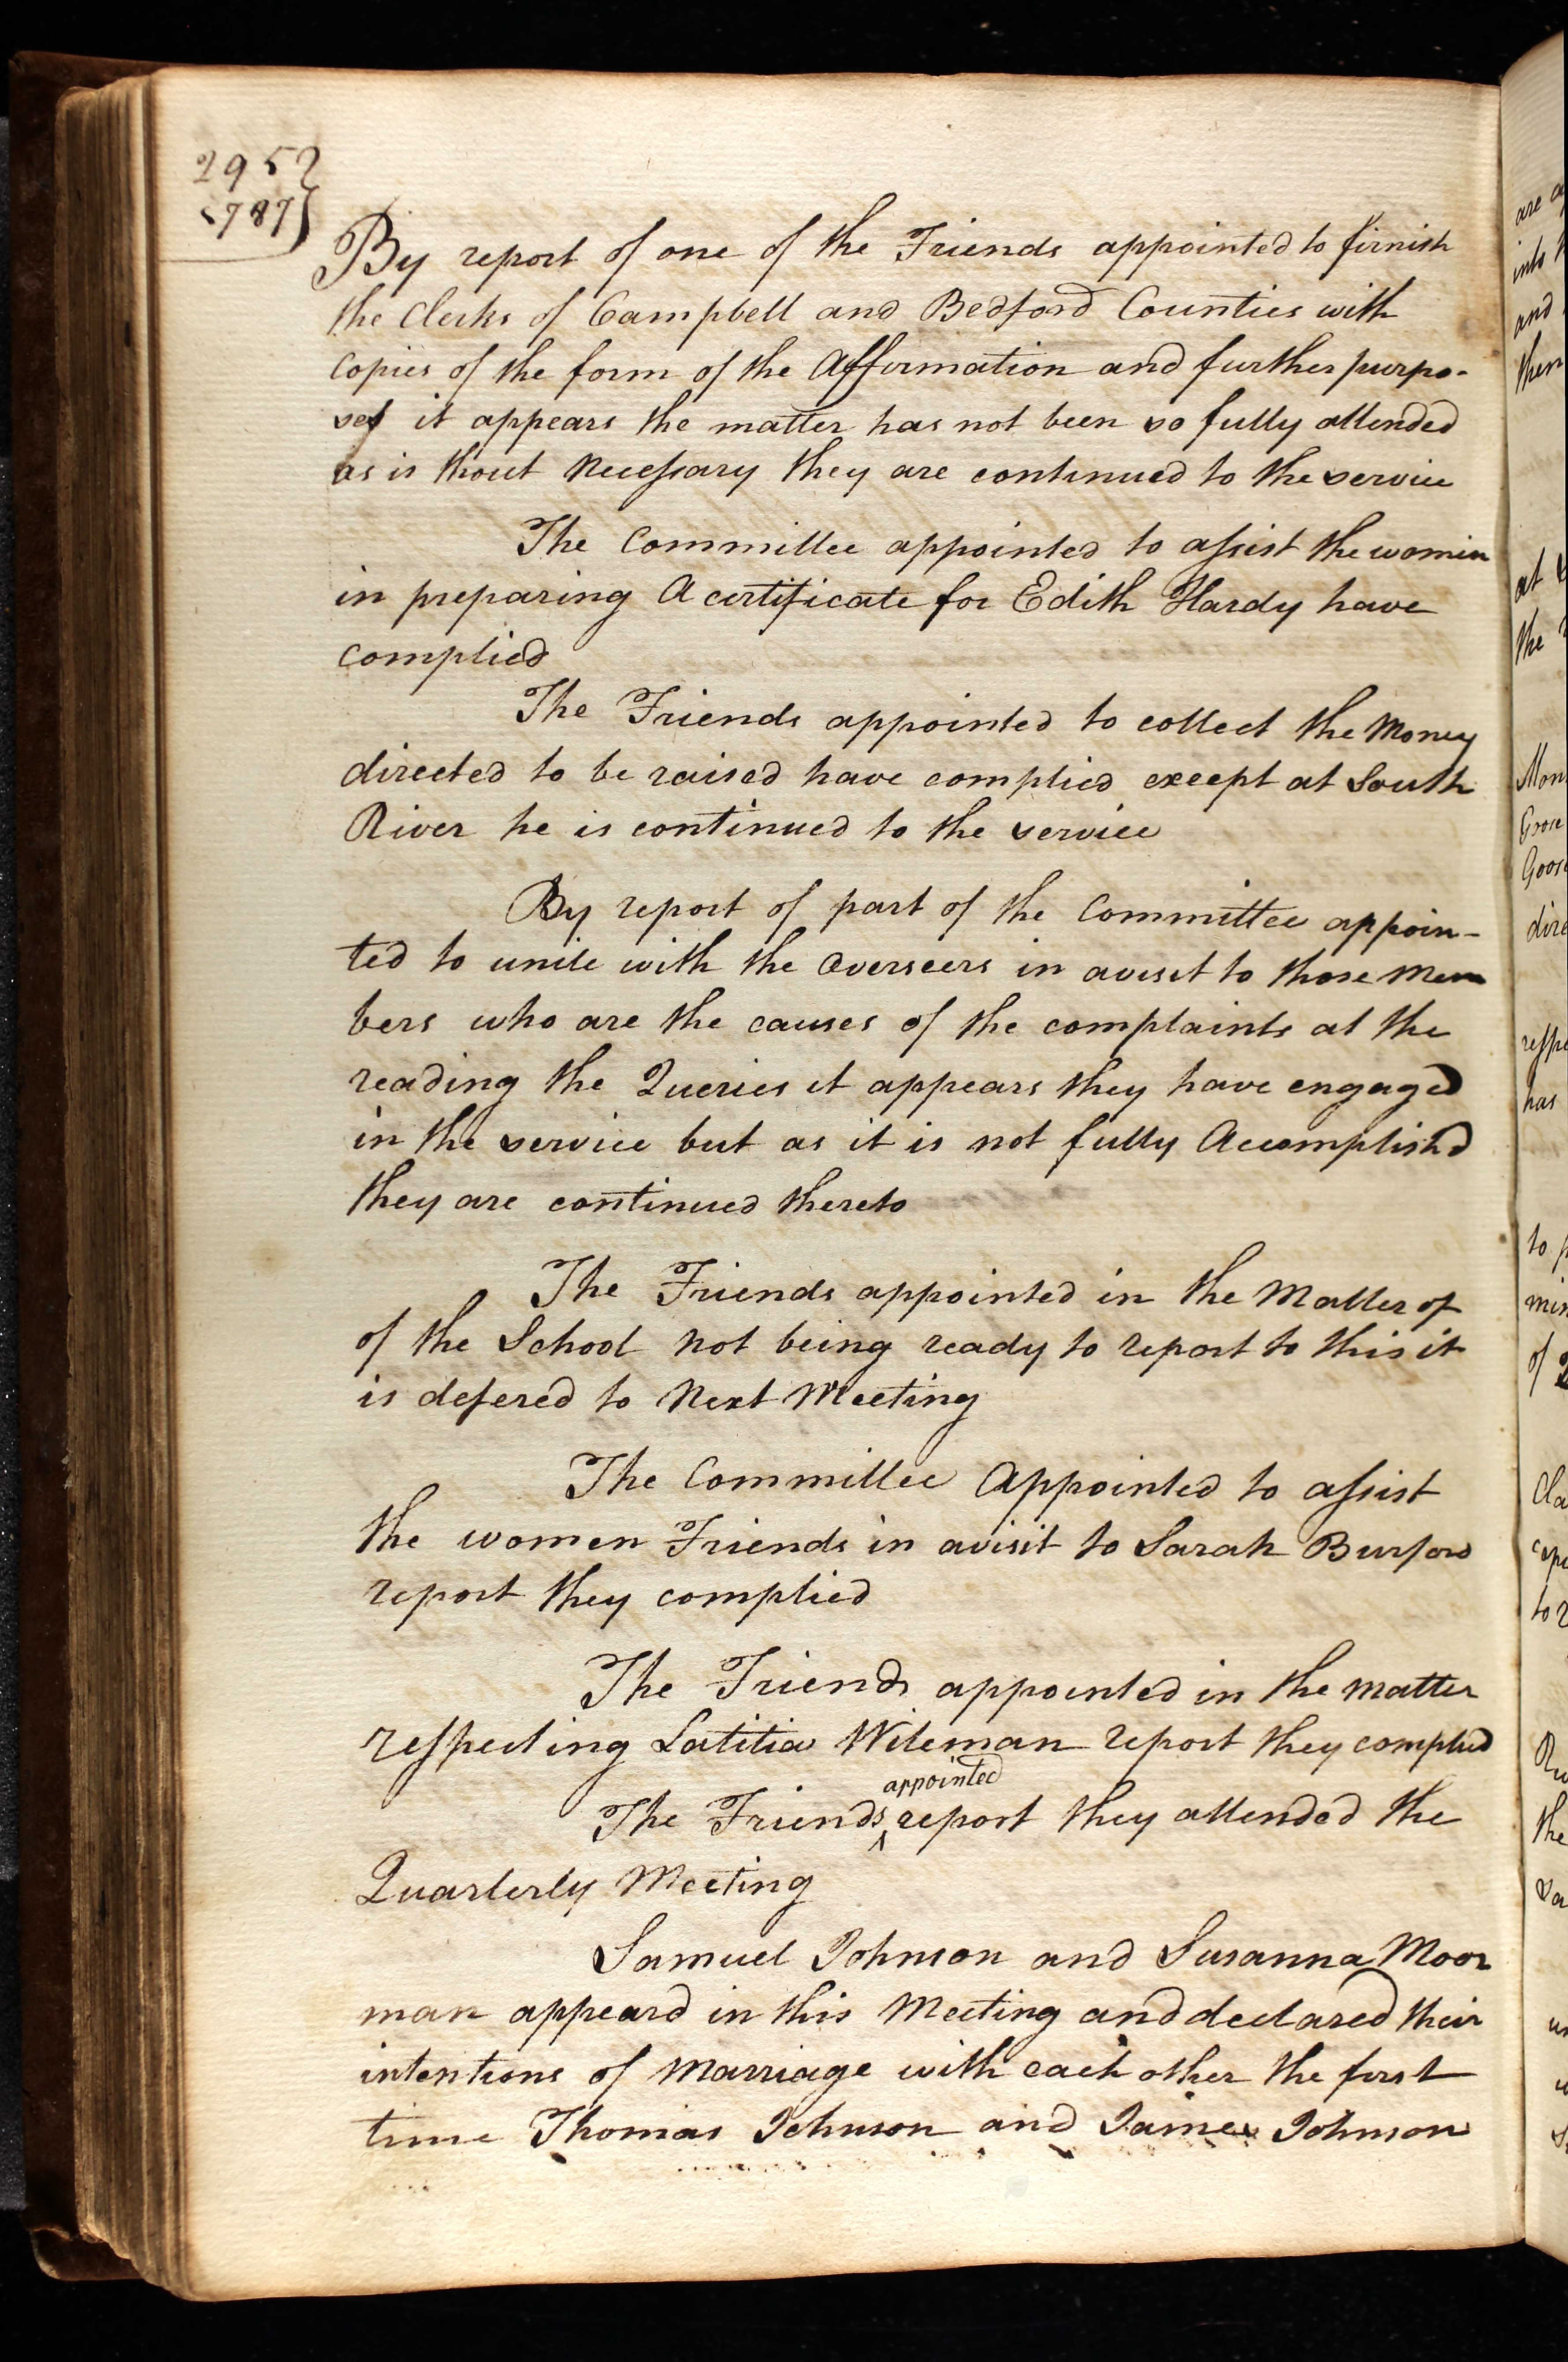 295
1787
By report of one of the Friends appointed to firnish
the Clerks of Campbell and Bedford Counties with
Copies of the form of the Affirmation and further purpo-
ses it appears the matter has not been so fully attended
as is thout Necessary they are continued to the service
The Committee appointed to assist the women
in preparing A certificate for Edith Hardy have
Complied
The Friends appointed to collect the Money
directed to be raised have complied except at South
River he is continued to the service
By report of part of the Committee appoin-
ted to unite with the Overseers in avisit to those Mem
bers who are the causes of the complaints at the
reading the Queries it appears they have engaged
in the service but as it is not fully Accomplishd
they are continued thereto
The Friends appointed in the Matter of
of the School not being ready to report to this it
is defered to Next Meeting
The Committee Appointed to assist
the women Friends in avisit to Sarah Burford
report they complied
The Friends appointed in the matter
respecting Latitia Wileman report they complied
appointed
The Friends ^ report they attended the
Quarterly Meeting
Samuel Johnson and Susanna Moor
man appeard in this Meeting and declared their
intentions of Marriage with each other the first
time Thomas Johnson and James Johnson
are
into
and
then
at
the
Mon
Goose
Goose
dire
has
to p
min
of
Cla
to r
the